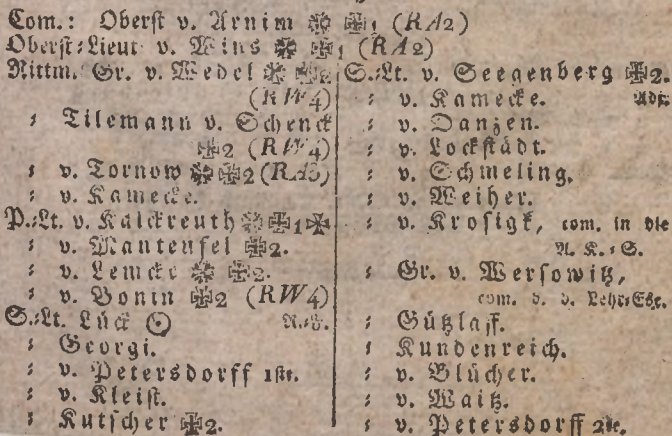 Com.: Oberst v. Arnim ✠1 (RA2)
Oberst-Lieut. v. Wins ✠1 (RA2)
Rittm. Gr. v. Wedel ✠2
(RW4)
: Tilemann v. Schenck
✠2 (RW4)
: v. Tornow ✠2 (RA3)
: v. Kamecke.
P.-Lt. v. Kalckreuth ✠1✠
: v. Manteufel ✠2.
: v. Lemcke ✠2.
: v. Bonin ✠2 (RW4)
S.-Lt. Lück ⊙
: Georgi.
: v. Petersdorff 1ste.
: v. Kleist.
: Kutscher ✠2.
S.-Lt. v. Seegenberg ✠2.
: v. Kamecke. Adj.
: v. Danzen.
: v. Lockstädt.
: v. Schmeling.
: v. Weiher.
: v. Krosigk, com. in die
A. K.-S.
: Gr. v. Wersowitz,
com. b. d. Lehr-Esk.
: Gützlaff.
: Kundenreich.
: v. Blücher.
: v. Waitz.
: v. Petersdorff 2te.